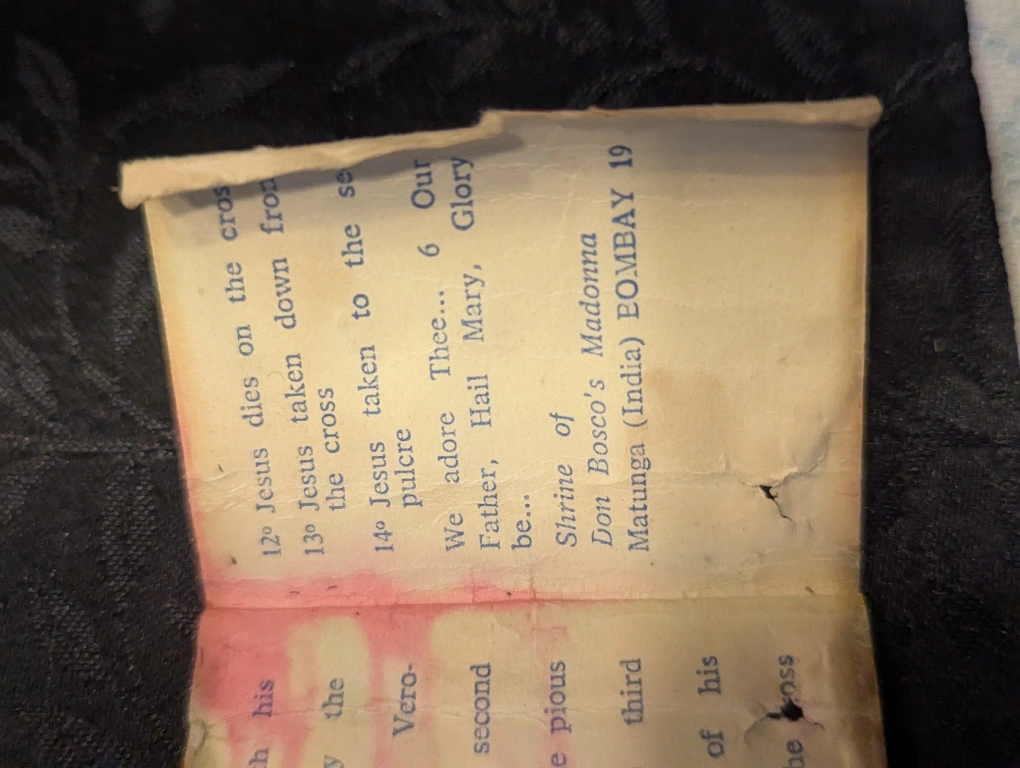 h his
y the
Vero-
second
e pious
third
of his
he
12º Jesus dies on the cros
13º Jesus taken down from
the cross
14º Jesus taken to the se
pulcre
We adore Thee... 6 Our
Father, Hail Mary, Glory
be...
Shrine of
Don Bosco's Madonna
Matunga (India) BOMBAY 19